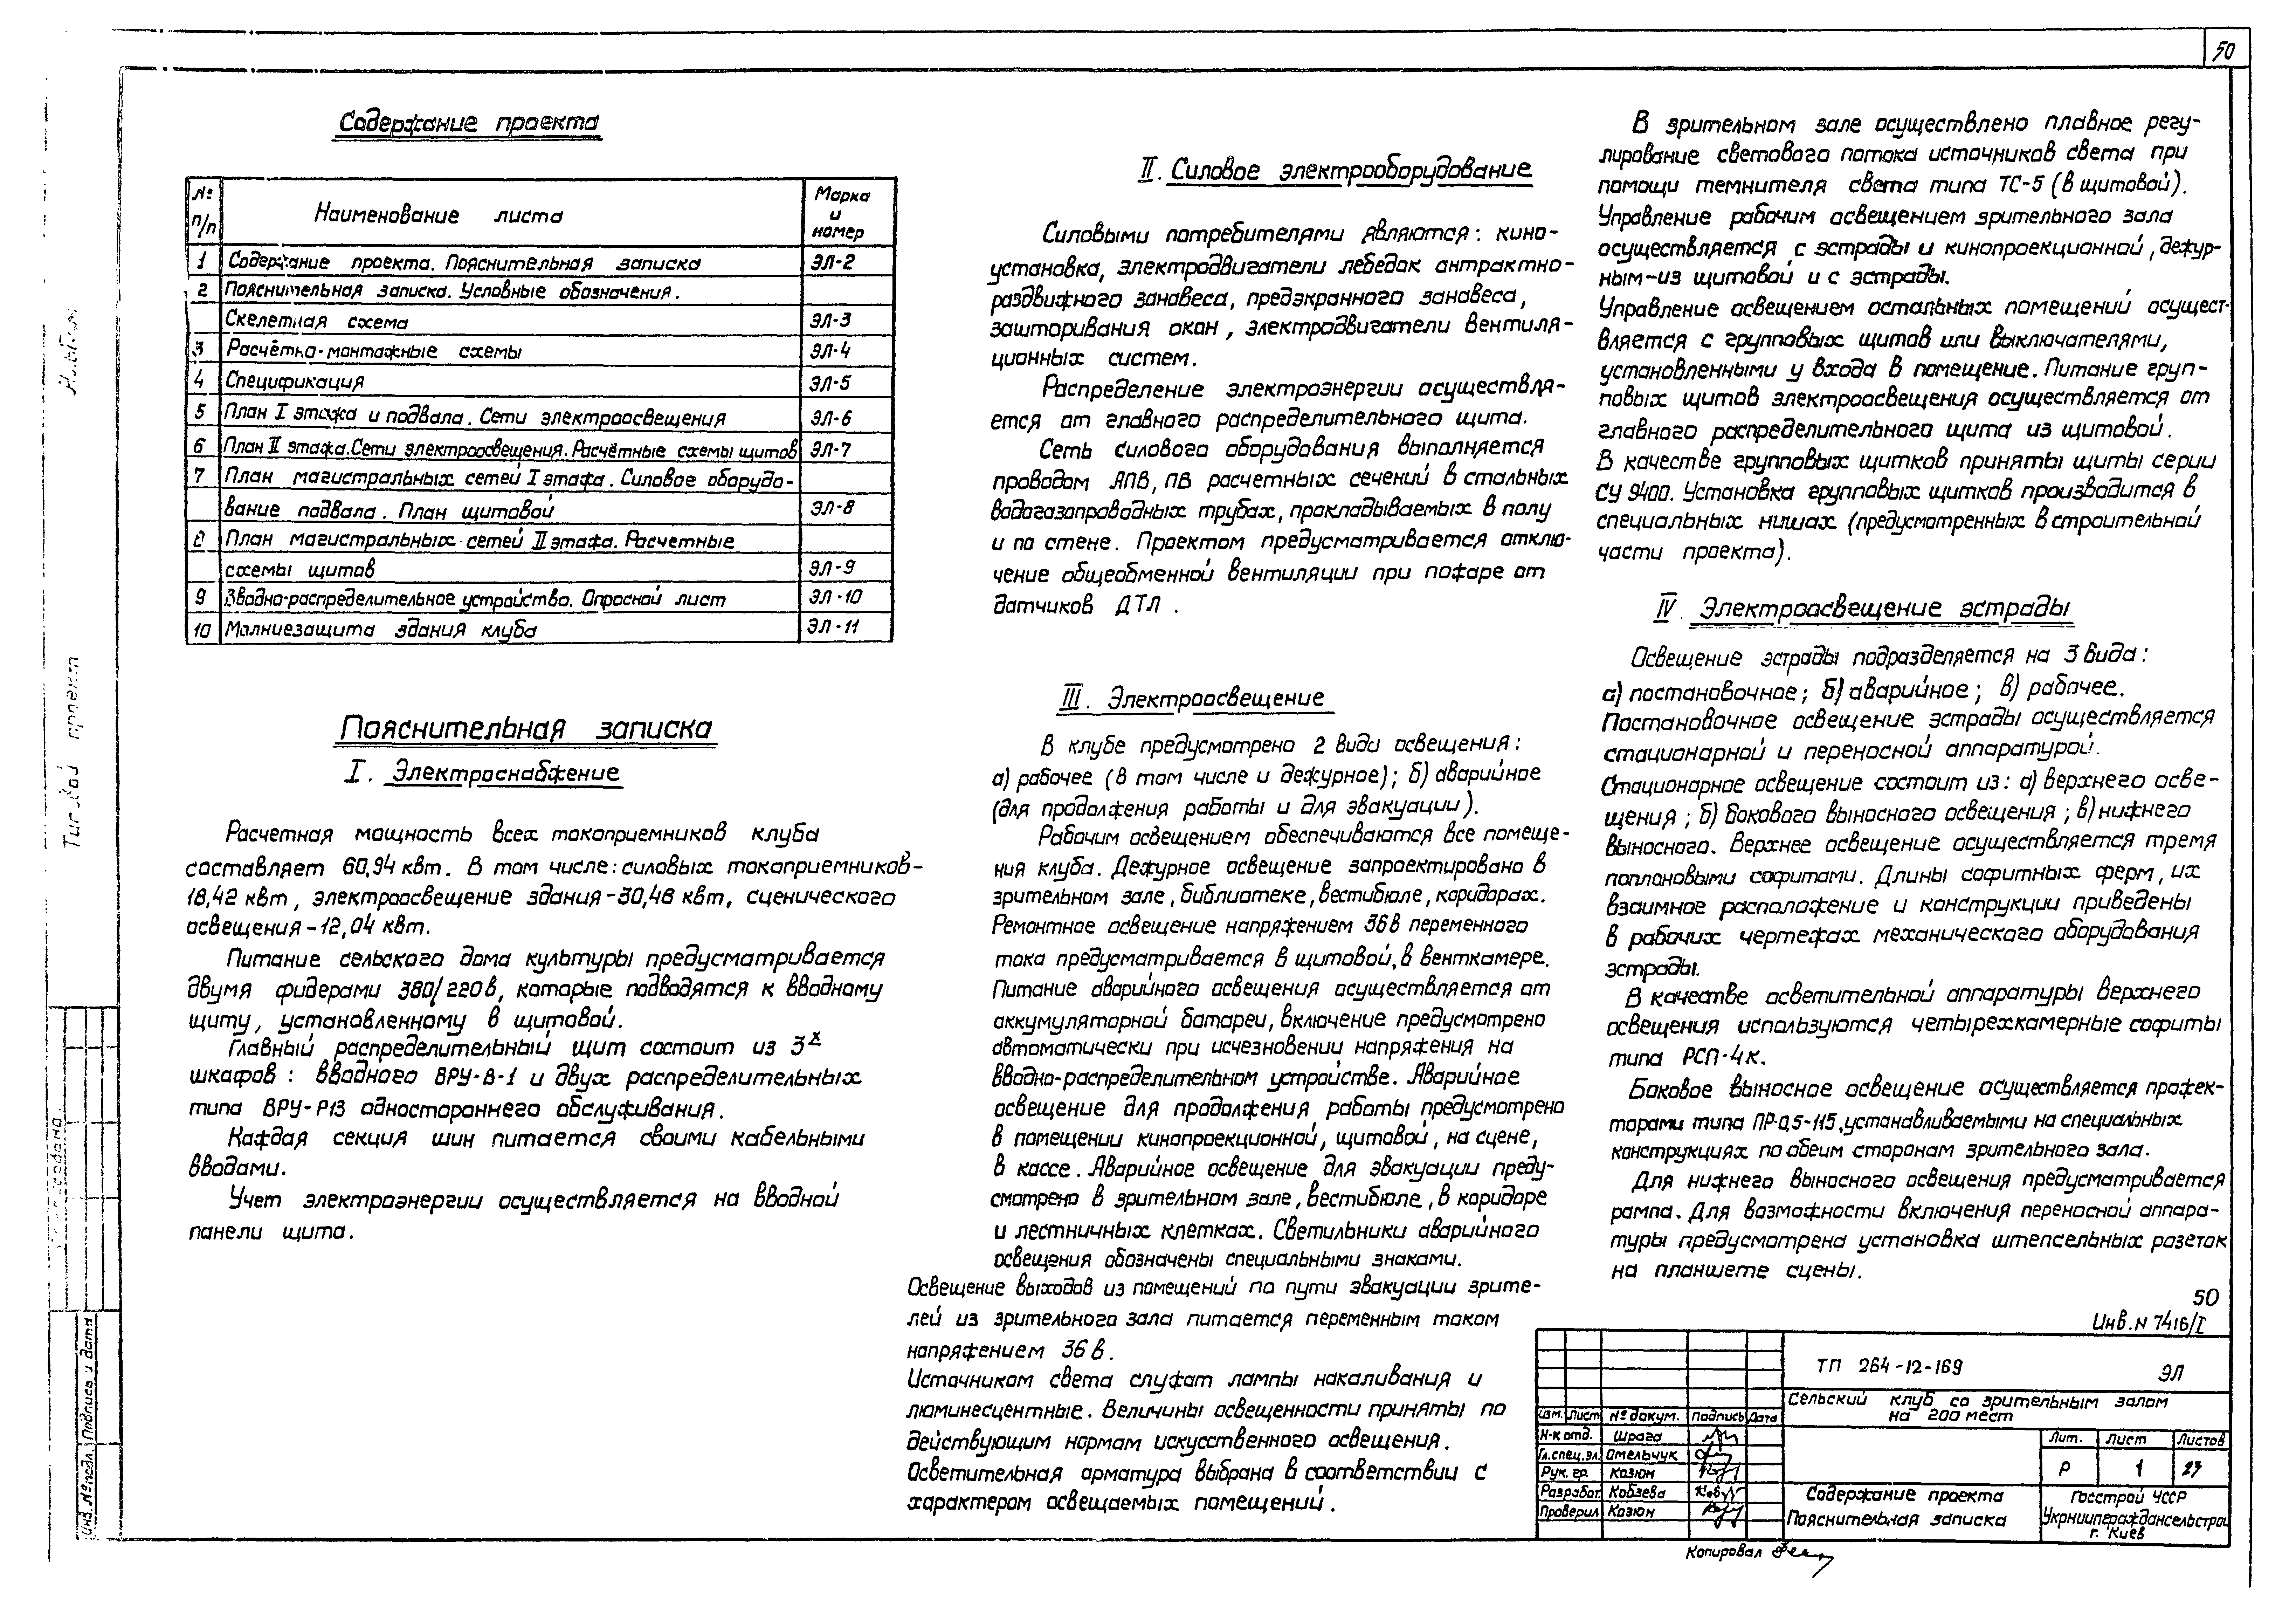 50
Содержание проекта
№ п/п
Наименование листа
Марка и номер
1 Содержание проекта. Пояснительная записка ЭЛ-2
2 Пояснительная записка. Условные обозначения.
Скелетная схема ЭЛ-3
3 Расчётно-монтажные схемы ЭЛ-4
4 Спецификация ЭЛ-5
5 План I этажа и подвала. Сети электроосвещения ЭЛ-6
6 План II этажа. Сети электроосвещения. Расчётные схемы щитов ЭЛ-7
7 План магистральных сетей I этажа. Силовое оборудо-
вание подвала. План щитовой ЭЛ-8
8 План магистральных сетей II этажа. Расчетные
схемы щитов ЭЛ-9
9 Вводно-распределительное устройство. Опросной лист ЭЛ-10
10 Молниезащита здания клуба ЭЛ-11
Пояснительная записка
I. Электроснабжение
Расчетная мощность всех токоприемников клуба
составляет 60,94 квт. В том числе: силовых токоприемников-
18,42 квт, электроосвещение здания-30,48 квт, сценического
освещения-12,04 квт.
Питание сельского дома культуры предусматривается
двумя фидерами 380/220в, которые подводятся к вводному
щиту, установленному в щитовой.
Главный распределительный щит состоит из 3х
шкафов: вводного ВРУ-В-1 и двух распределительных
типа ВРУ-Р13 одностороннего обслуживания.
Каждая секция шин питается своими кабельными
вводами.
Учет электроэнергии осуществляется на вводной
панели щита.
II. Силовое электрооборудование
Силовыми потребителями являются: кино-
установка, электродвигатели лебедок антрактно-
раздвижного занавеса, предэкранного занавеса,
зашторивания окон, электродвигатели вентиля-
ционных систем.
Распределение электроэнергии осуществля-
ется от главного распределительного щита.
Сеть силового оборудования выполняется
проводом АПВ, ПВ расчетных сечений в стальных
водогазопроводных трубах, прокладываемых в полу
и по стене. Проектом предусматривается отклю-
чение общеобменной вентиляции при пожаре от
датчиков ДТЛ.
III. Электроосвещение
В клубе предусмотрено 2 вида освещения:
а) рабочее (в том числе и дежурное); б) аварийное
(для продолжения работы и для эвакуации).
Рабочим освещением обеспечиваются все помеще-
ния клуба. Дежурное освещение запроектировано в
зрительном зале, библиотеке, вестибюле, коридорах.
Ремонтное освещение напряжением 36в переменного
тока предусматривается в щитовой, в венткамере.
Питание аварийного освещения осуществляется от
аккумуляторной батареи, включение предусмотрено
автоматически при исчезновении напряжения на
вводно-распределительном устройстве. Аварийное
освещение для продолжения работы предусмотрено
в помещении кинопроекционной, щитовой, на сцене,
в кассе. Аварийное освещение для эвакуации преду-
смотрено в зрительном зале, вестибюле, в коридоре
и лестничных клетках. Светильники аварийного
освещения обозначены специальными знаками.
Освещение выходов из помещений по пути эвакуации зрите-
лей из зрительного зала питается переменным током
напряжением 36 в.
Источником света служат лампы накаливания и
люминесцентные. Величины освещенности приняты по
действующим нормам искусственного освещения.
Осветительная арматура выбрана в соответствии с
характером освещаемых помещений.
В зрительном зале осуществлено плавное регу-
лирование светового потока источников света при
помощи темнителя света типа ТС-5 (в щитовой).
Управление рабочим освещением зрительного зала
осуществляется с эстрады и кинопроекционной, дежур-
ным-из щитовой и с эстрады.
Управление освещением остальных помещений осущест-
вляется с групповых щитов или выключателями,
установленными у входа в помещение. Питание груп-
повых щитов электроосвещения осуществляется от
главного распределительного щита из щитовой.
В качестве групповых щитков приняты щиты серии
СУ 9400. Установка групповых щитков производится в
специальных нишах (предусмотренных в строительной
части проекта).
IV. Электроосвещение эстрады
Освещение эстрады подразделяется на 3 вида:
а) постановочное; б) аварийное; в) рабочее.
Постановочное освещение эстрады осуществляется
стационарной и переносной аппаратурой.
Стационарное освещение состоит из: а) верхнего осве-
щения; б) бокового выносного освещения; в) нижнего
выносного. Верхнее освещение осуществляется тремя
поплановыми софитами. Длины софитных ферм, их
взаимное расположение и конструкции приведены
в рабочих чертежах механического оборудования
эстрады.
В качестве осветительной аппаратуры верхнего
освещения используются четырехкамерные софиты
типа РСП-4к.
Боковое выносное освещение осуществляется прожек-
торами типа ПР-0,5-115, устанавливаемыми на специальных
конструкциях по обеим сторонам зрительного зала.
Для нижнего выносного освещения предусматривается
рампа. Для возможности включения переносной аппара-
туры предусмотрена установка штепсельных розеток
на планшете сцены.
50
Инв. N 7416/I
ТП 264-12-169 ЭЛ
Сельский клуб со зрительным залом
на 200 мест
Изм. Лист № докум. Подпись Дата
Н-к отд. Шрага
Гл.спец.эл. Омельчук
Рук. гр. Козюн
Разработ. Кобзева
Проверил Козюн
Лит. Лист Листов
Р 1
Содержание проекта
Пояснительная записка
Госстрой УССР
Укрниипграждансельстрой
г. Киев
Копировал
Типовой проект
Альбом
Инв. № подл. Подпись и дата